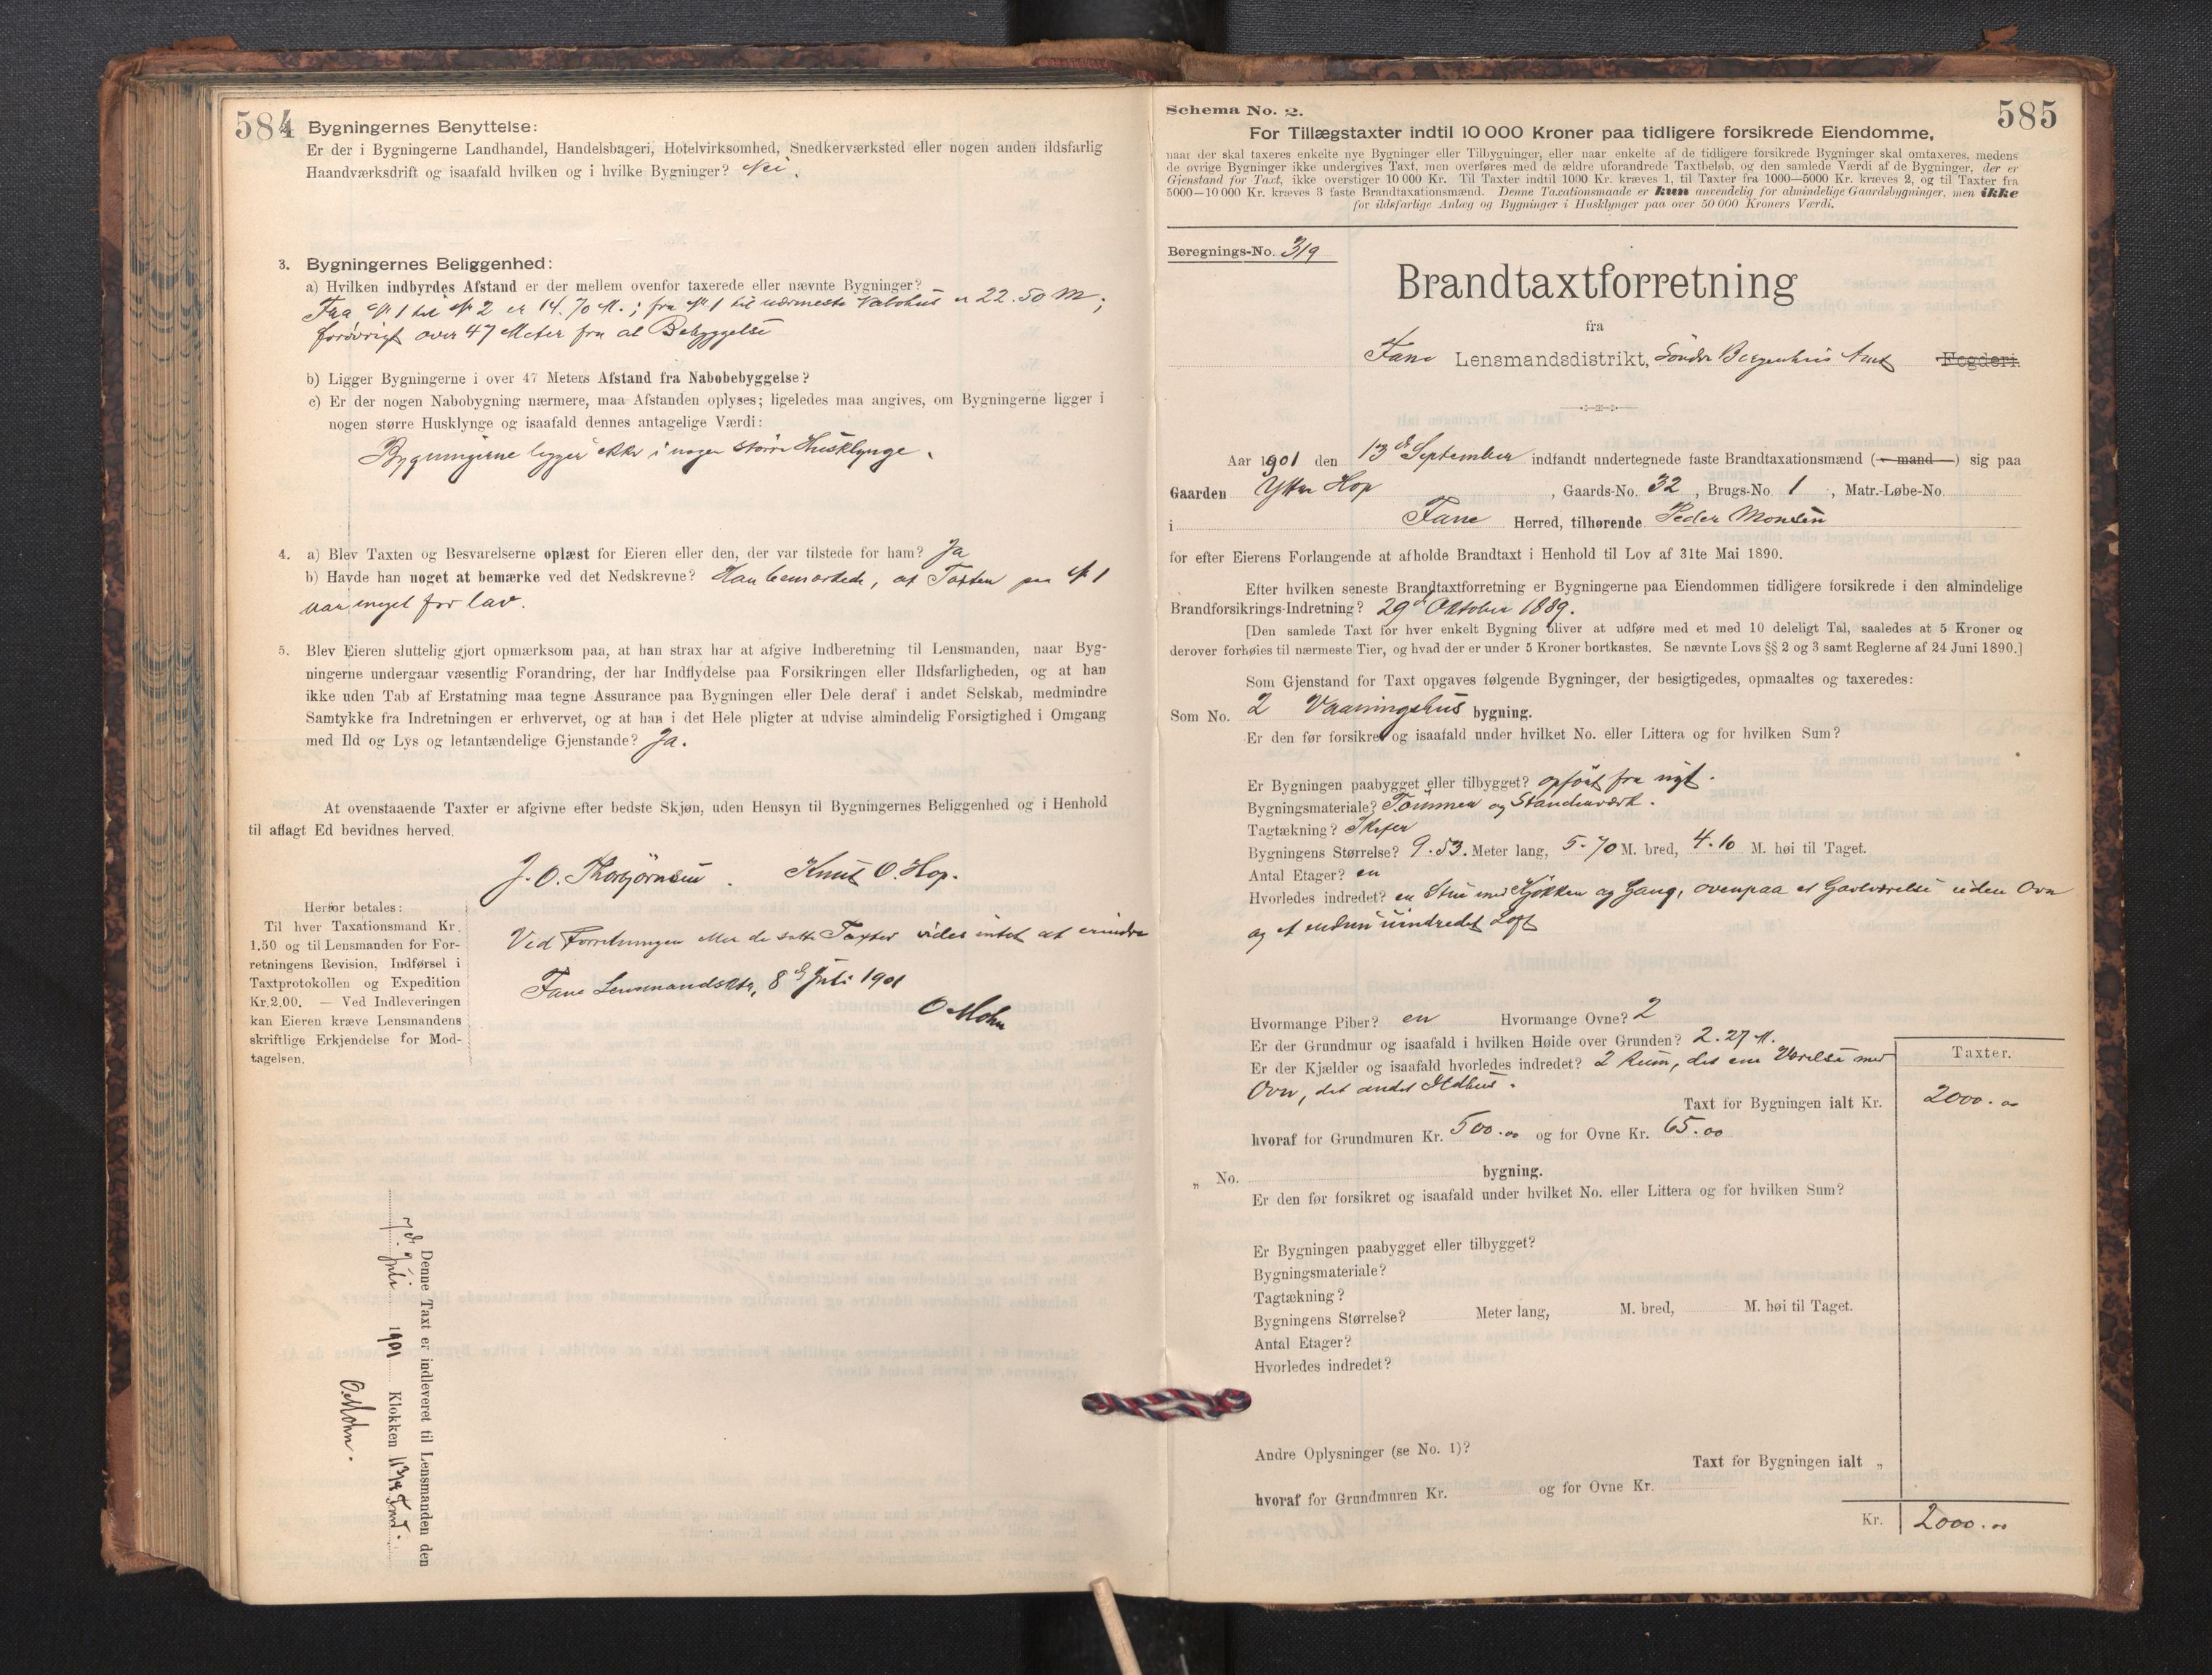 584
Bygningernes Benyttelse:
Er der i Bygningerne Landhandel, Handelsbageri, Hotelvirksomhed, Snedkerværksted eller nogen anden ildsfarlig
Haandværksdrift og isaafald hvilken og i hvilke Bygninger? Nei.
3. Bygningernes Beliggenhed:
a) Hvilken indbyrdes Afstand er der mellem ovenfor taxerede eller nævnte Bygninger?
Fra No 1 til No 2 er 14.70 M.; fra No 1 til nærmeste Nabohus er 22.50 M;
forøvrigt over 47 Meter fra al Bebyggelse
b) Ligger Bygningerne i over 47 Meters Afstand fra Nabobebyggelse?
c) Er der nogen Nabobygning nærmere, maa Afstanden oplyses; ligeledes maa angives, om Bygningerne ligger i
nogen større Husklynge og isaafald dennes antagelige Værdi:
Bygningerne ligger ikke i nogen større Husklynge.
4. a) Blev Taxten og Besvarelserne oplæst for Eieren eller den, der var tilstede for ham? Ja
b) Havde han noget at bemærke ved det Nedskrevne? Han bemærkede, at Taxten paa No 1
var meget for lav.
5. Blev Eieren sluttelig gjort opmærksom paa, at han strax har at afgive Indberetning til Lensmanden, naar Byg-
ningerne undergaar væsentlig Forandring, der har Indflydelse paa Forsikringen eller Ildsfarligheden, og at han
ikke uden Tab af Erstatning maa tegne Assurance paa Bygningen eller Dele deraf i andet Selskab, medmindre
Samtykke fra Indretningen er erhvervet, og at han i det Hele pligter at udvise almindelig Forsigtighed i Omgang
med Ild og Lys og letantændelige Gjenstande? Ja.
At ovenstaaende Taxter er afgivne efter bedste Skjøn, uden Hensyn til Bygningernes Beliggenhed og i Henhold
til aflagt Ed bevidnes herved.
J. O. Thorbjörnsen. Knut O. Hop.
Herfor betales:
Til hver Taxationsmand Kr.
1,50 og til Lensmanden for For-
retningens Revision, Indførsel i
Taxtprotokollen og Expedition
Kr. 2,00. — Ved Indleveringen
kan Eieren kræve Lensmandens
skriftlige Erkjendelse for Mod-
tagelsen.
Ved Forretningen eller de satte Taxter vides intet at erindre
Fane Lensmandsktr, 8 d Juli 1901
O Mohn
Denne Taxt er indleveret til Lensmanden den
7 d Juli 1901 Klokken 11 3/4 Form.
O. Mohn.
585
Schema No. 2.
For Tillægstaxter indtil 10 000 Kroner paa tidligere forsikrede Eiendomme,
naar der skal taxeres enkelte nye Bygninger eller Tilbygninger, eller naar enkelte af de tidligere forsikrede Bygninger skal omtaxeres, medens
de øvrige Bygninger ikke undergives Taxt, men overføres med de ældre uforandrede Taxtbeløb, og den samlede Værdi af de Bygninger, der er
Gjenstand for Taxt, ikke overstiger 10 000 Kr. Til Taxter indtil 1000 Kr. kræves 1, til Taxter fra 1000—5000 Kr. kræves 2, og til Taxter fra
5000—10 000 Kr. kræves 3 faste Brandtaxationsmænd. Denne Taxationsmaade er kun anvendelig for almindelige Gaardsbygninger, men ikke
for ildsfarlige Anlæg og Bygninger i Husklynger paa over 50 000 Kroners Værdi.
Beregnings-No. 319
Brandtaxtforretning
fra
Fane Lensmandsdistrikt, Söndre Bergenhus Amt Fogderi.
Aar 1901 den 13 d September indfandt undertegnede faste Brandtaxationsmænd (— mand —) sig paa
Gaarden Ytre Hop, Gaards-No. 32, Brugs-No. 1, Matr.-Løbe-No.
i Fane Herred, tilhørende Peder Monsen
for efter Eierens Forlangende at afholde Brandtaxt i Henhold til Lov af 31te Mai 1890.
Efter hvilken seneste Brandtaxtforretning er Bygningerne paa Eiendommen tidligere forsikrede i den almindelige
Brandforsikrings-Indretning? 29 d Oktober 1889.
[Den samlede Taxt for hver enkelt Bygning bliver at udføre med et med 10 deleligt Tal, saaledes at 5 Kroner og
derover forhøies til nærmeste Tier, og hvad der er under 5 Kroner bortkastes. Se nævnte Lovs §§ 2 og 3 samt Reglerne af 24 Juni 1890.]
Som Gjenstand for Taxt opgaves følgende Bygninger, der besigtigedes, opmaaltes og taxeredes:
Som No. 2 Vaaningshus bygning.
Er den før forsikret og isaafald under hvilket No. eller Littera og for hvilken Sum?
Er Bygningen paabygget eller tilbygget? opført fra nyt.
Bygningsmateriale? Tømmer og Standerværk.
Tagtækning? Skifer
Bygningens Størrelse? 9.53. Meter lang, 5.70 M. bred, 4.10 M. høi til Taget.
Antal Etager? en
Hvorledes indredet? en Stue med Kjøkken og Gang, ovenpaa et Gavlværelse uden Ovn
og et endnu uindredet Loft
Hvormange Piber? en Hvormange Ovne? 2
Er der Grundmur og isaafald i hvilken Høide over Grunden? 2.27 M.
Er der Kjælder og isaafald hvorledes indredet? 2 Rum, det ene Værelse med
Ovn, det andet Ildhus.
Taxter.
Taxt for Bygningen ialt Kr. 2000.00
hvoraf for Grundmuren Kr. 500.00 og for Ovne Kr. 65.00
„ No. bygning.
Er den før forsikret og isaafald under hvilket No. eller Littera og for hvilken Sum?
Er Bygningen paabygget eller tilbygget?
Bygningsmateriale?
Tagtækning?
Bygningens Størrelse? Meter lang, M. bred, M. høi til Taget.
Antal Etager?
Hvorledes indredet?
Andre Oplysninger (se No. 1)?
Taxt for Bygningen ialt „
hvoraf for Grundmuren Kr. og for Ovne Kr.
Kr. 2000.00